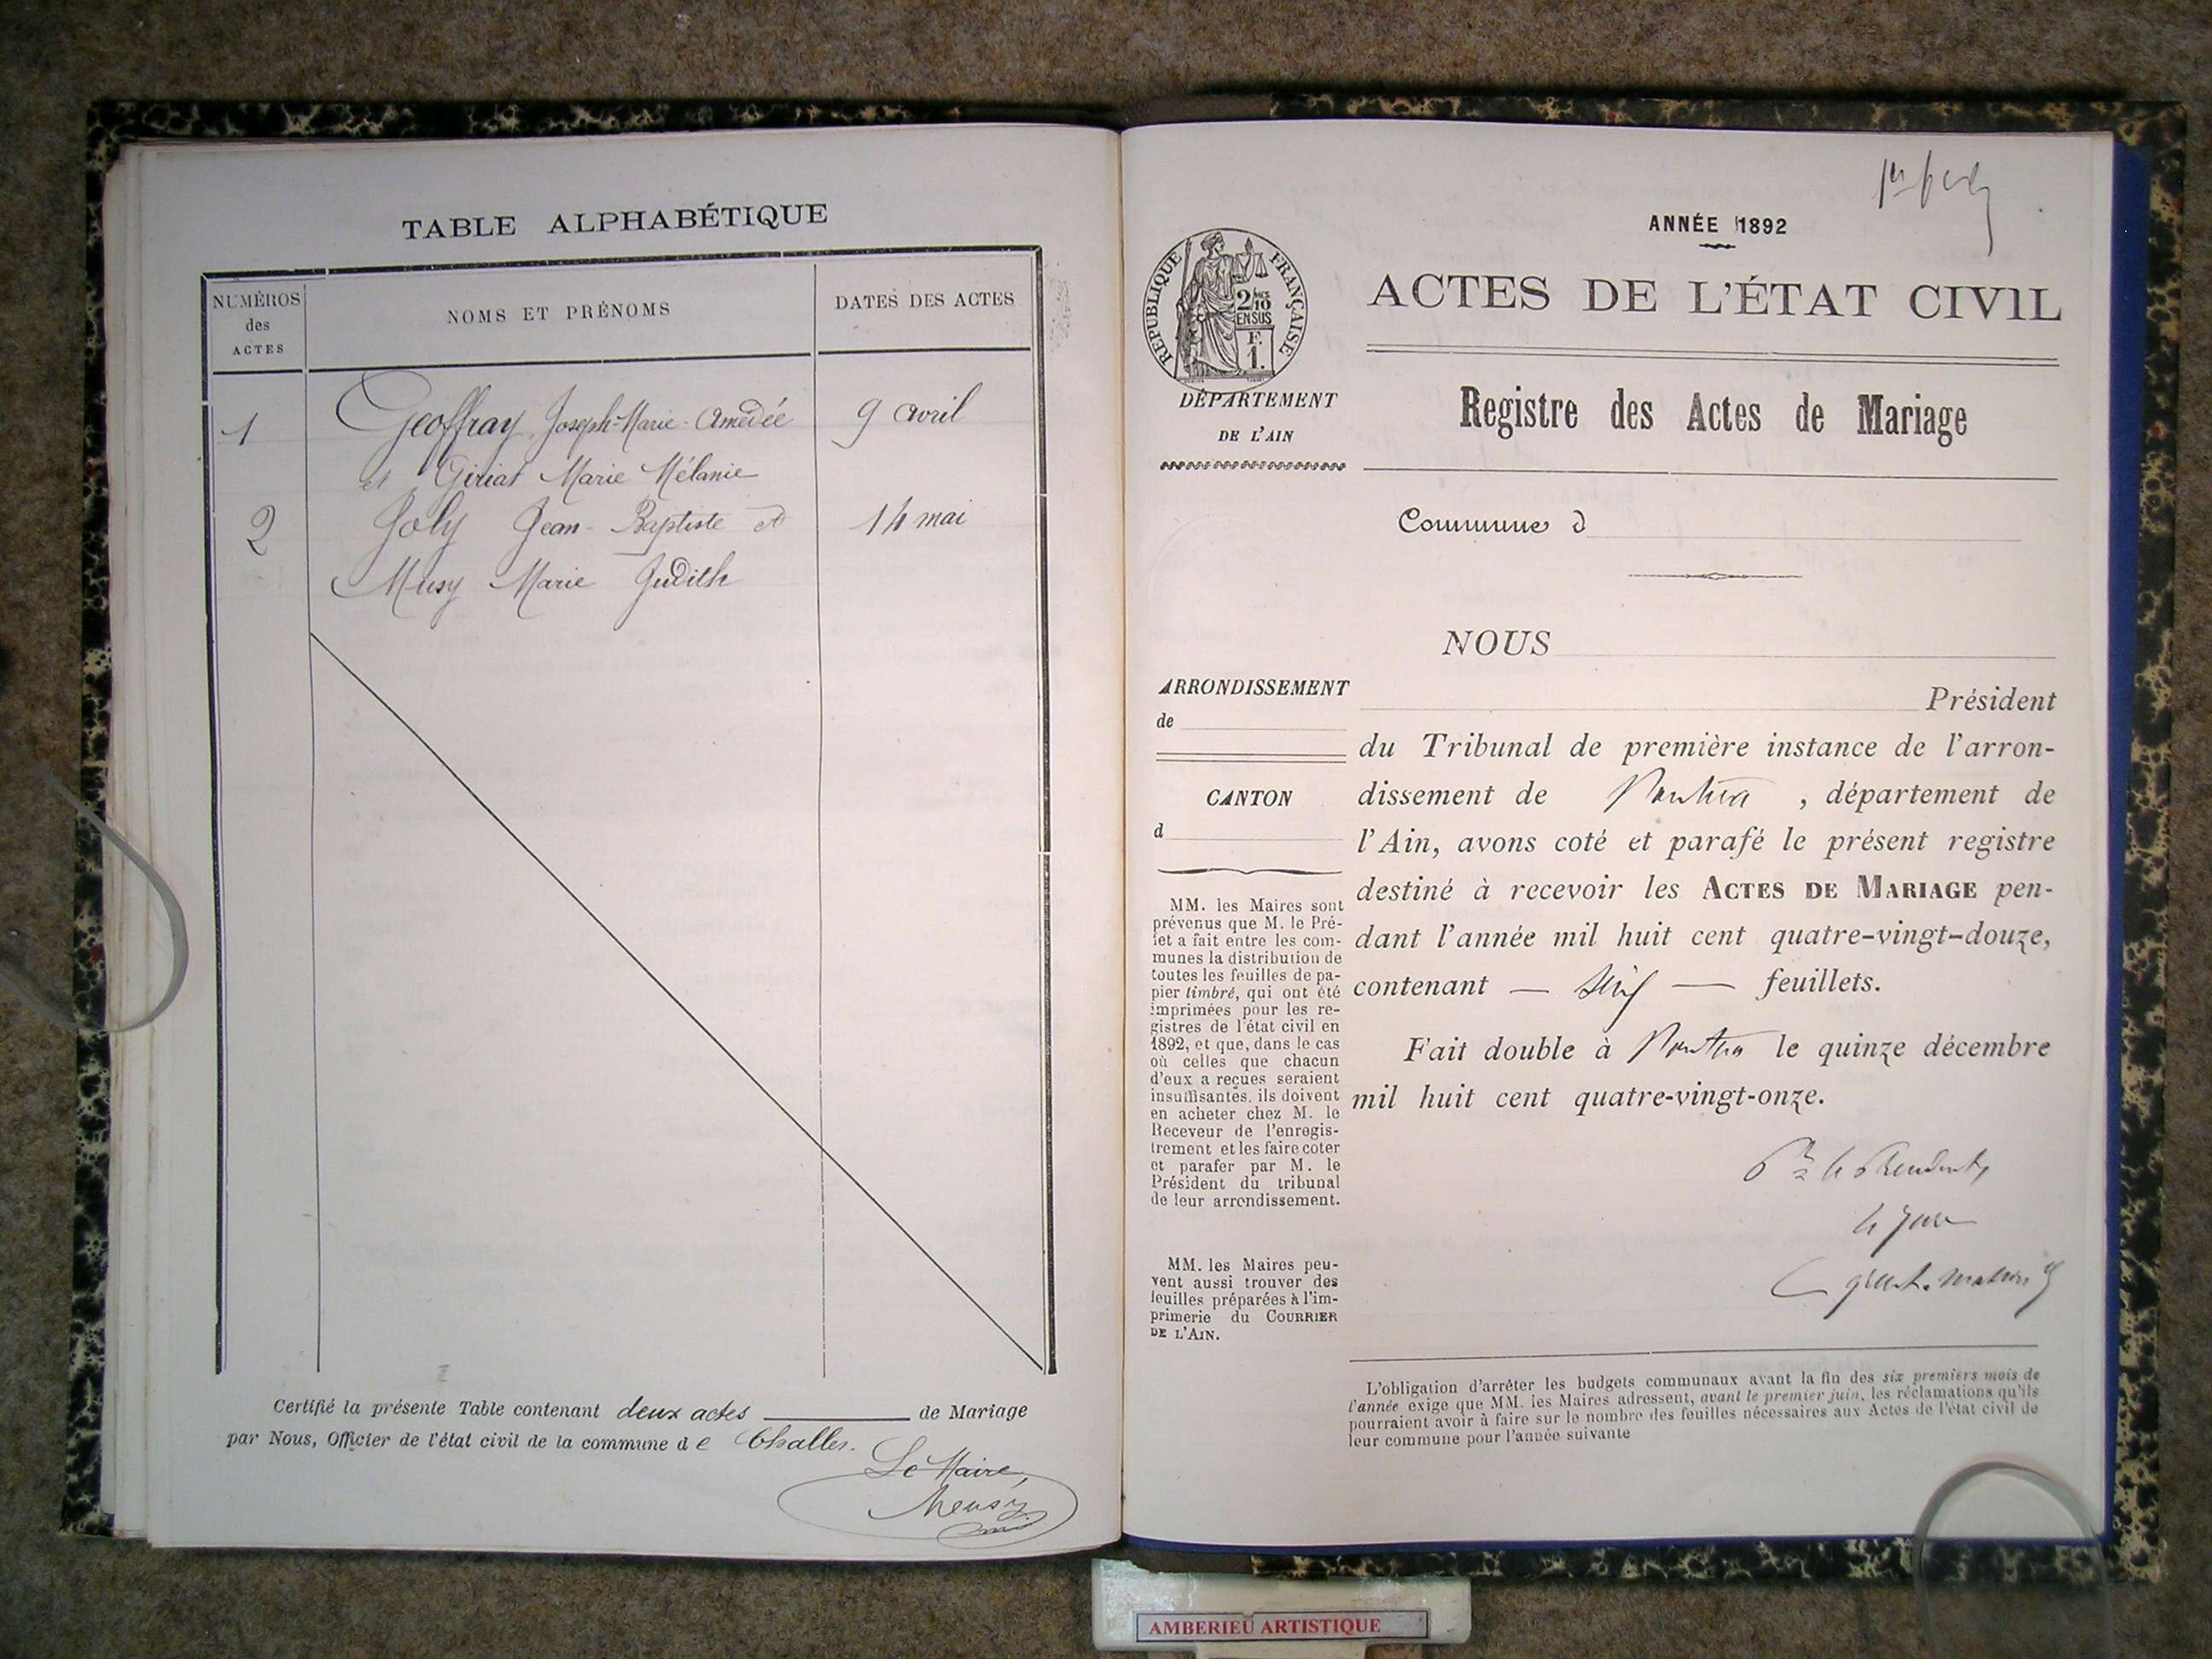 TABLE ALPHABÉTIQUE
NUMÉROS
des
ACTES
NOMS ET PRÉNOMS
DATES DES ACTES
1
Geoffray Joseph-Marie-Amédée
9 avril
et Giriat Marie Mélanie
2
Joly Jean-Baptiste et
14 mai
Musy Marie Judith
Certifié la présente Table contenant deux actes de Mariage
par Nous, Officier de l'état civil de la commune de Challes.
Le Maire,
ANNÉE 1892
RÉPUBLIQUE FRANÇAISE
2 10
EN SUS
F.
1.
ACTES DE L'ÉTAT CIVIL
DÉPARTEMENT
DE L'AIN
Registre des Actes de Mariage
Commune d
NOUS
ARRONDISSEMENT
de
Président
du Tribunal de première instance de l'arron-
CANTON
d
dissement de Nantua, département de
l'Ain, avons coté et parafé le présent registre
destiné à recevoir les ACTES DE MARIAGE pen-
dant l'année mil huit cent quatre-vingt-douze,
contenant — — feuillets.
Fait double à Nantua le quinze décembre
mil huit cent quatre-vingt-onze.
Pr le Président,
le juge
MM. les Maires sont
prévenus que M. le Pré-
fet a fait entre les com-
munes la distribution de
toutes les feuilles de pa-
pier timbré, qui ont été
imprimées pour les re-
gistres de l'état civil en
1892, et que, dans le cas
où celles que chacun
d'eux a reçues seraient
insuffisantes, ils doivent
en acheter chez M. le
Receveur de l'enregis-
trement et les faire coter
et parafer par M. le
Président du tribunal
de leur arrondissement.
MM. les Maires peu-
vent aussi trouver des
feuilles préparées à l'im-
primerie du COURRIER
DE L'AIN.
L'obligation d'arrêter les budgets communaux avant la fin des six premiers mois de
l'année exige que MM. les Maires adressent, avant le premier juin, les réclamations qu'ils
pourraient avoir à faire sur le nombre des feuilles nécessaires aux Actes de l'état civil de
leur commune pour l'année suivante
AMBERIEU ARTISTIQUE